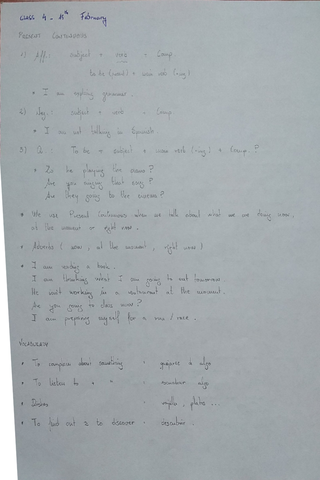 CLASS 4 - 11th February
PRESENT CONTINUOUS
1) Aff.: subject + verb + Comp.
to be (present) + main verb (ing)
• I am explaining grammar.
2) Neg.: subject + verb + Comp.
• I am not talking in Spanish
3) Q.: To be + subject + main verb (ing) + Comp.?
• Is he playing the piano?
Are you singing that song?
Are they going to the cinema?
• We use Present Continuous when we talk about what we are doing now,
at the moment or right now.
• Adverbs (now, at the moment, right now)
• I am reading a book.
I am thinking what I am going to eat tomorrow.
He isn't working in a restaurant at the moment.
Are you going to class now?
I am preparing myself for a run / race.
VOCABULARY
• To complain about something - quejarse de algo
• To listen to + " - escuchar algo
• Dishes - vajilla, platos...
• To find out = to discover - descubrir.